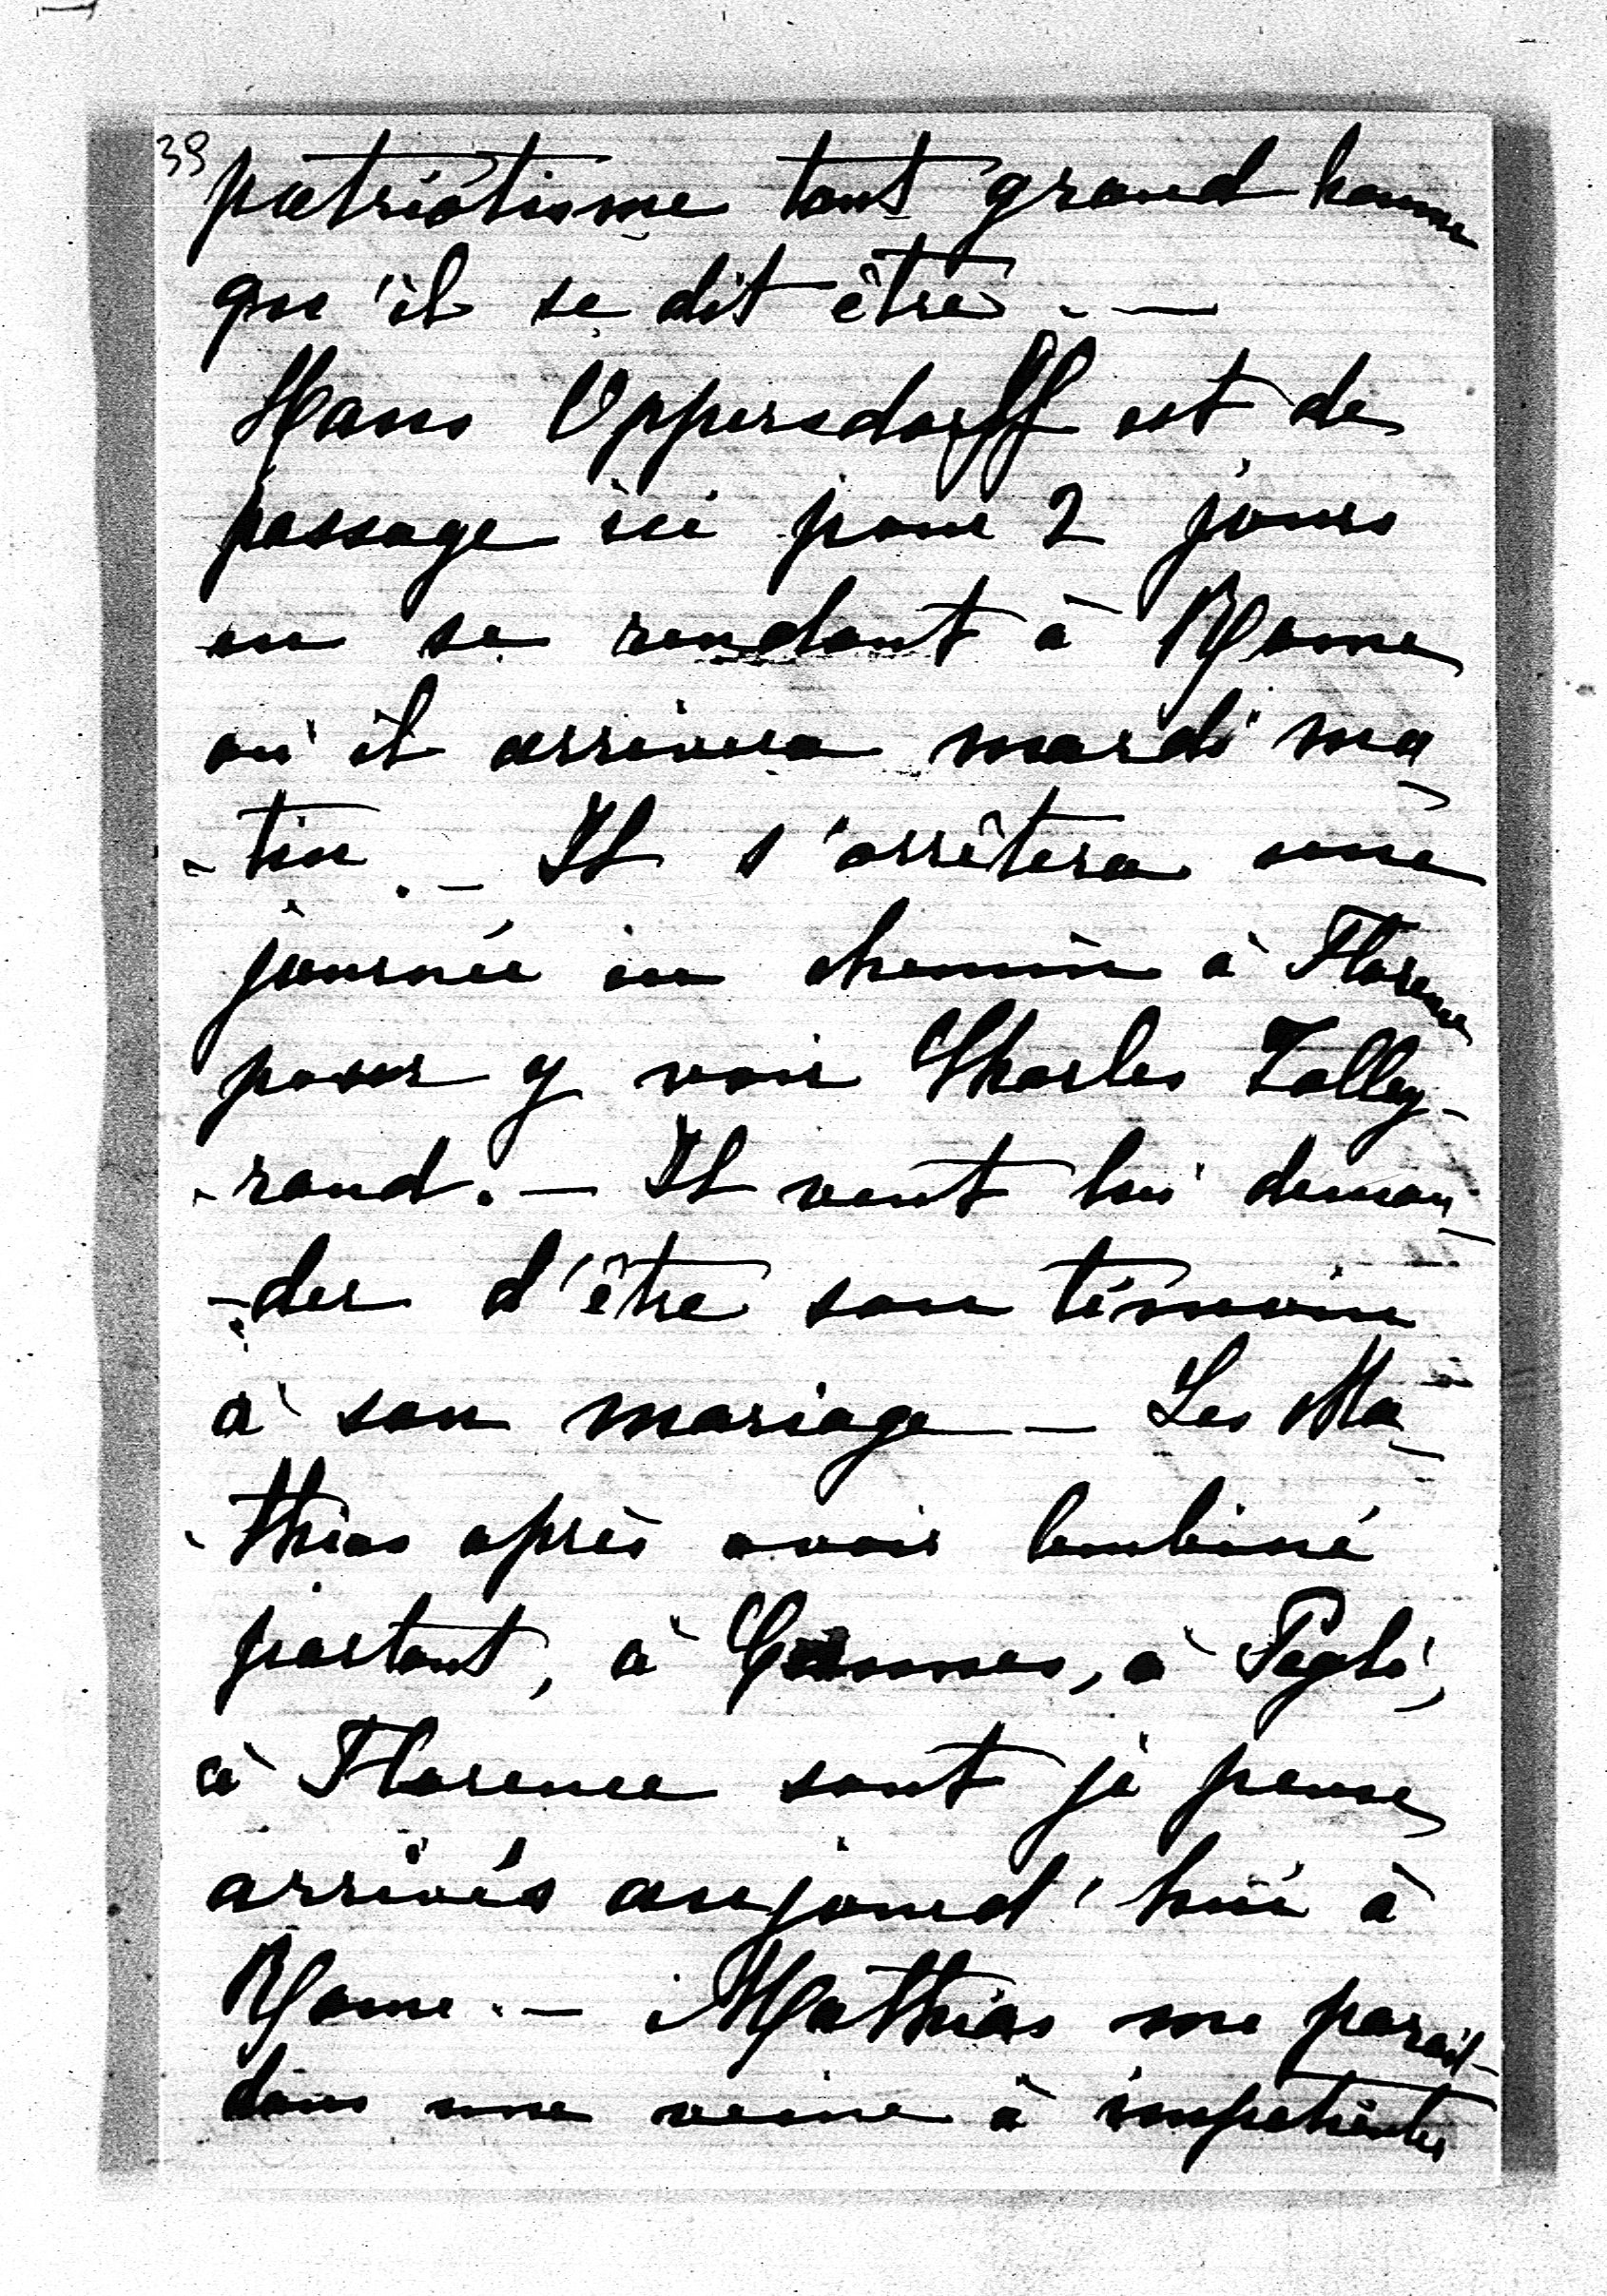 39
patriotisme tout grand homme
qu'il se dit être. —
Hans Oppersdorff est de
passage ici pour 2 jours
en se rendant à Rome
où il arrivera mardi ma-
-tin. — Il s'arrêtera une
journée en chemin à Florence
pour y voir Charles Talley-
-rand. — Il veut lui deman-
-der d'être son témoin
à son mariage — Les Ma-
-thias après avoir lambiné
partout, à Cannes, à Pegli,
à Florence sont je pense
arrivés aujourd'hui à
Rome. — Mathias me parait
dans une veine à impatienter